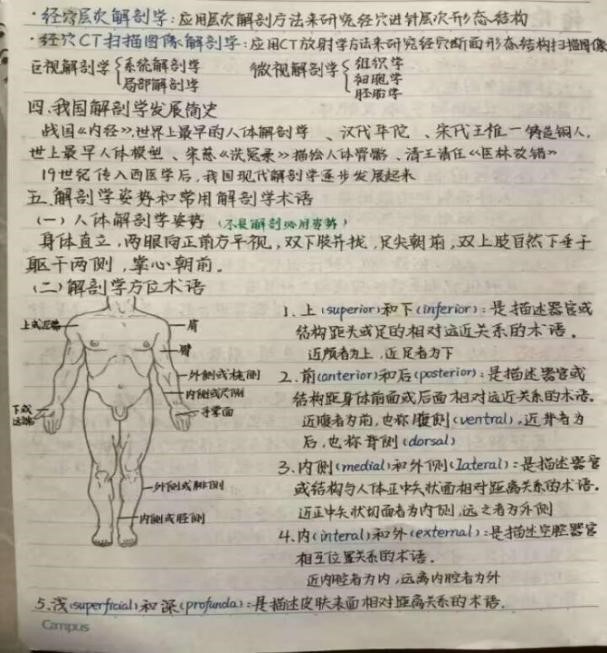 ·经穴层次解剖学:应用层次解剖方法来研究经穴进针层次形态结构
·经穴CT扫描图像解剖学:应用CT放射学方法来研究经穴断面形态结构扫描图像
巨视解剖学{系统解剖学 局部解剖学 微视解剖学{组织学 细胞学 胚胎学
四.我国解剖学发展简史
战国《内经》,世界上最早的人体解剖学、汉代华陀、宋代王惟一铸造铜人,
世上最早人体模型、宋慈《洗冤录》描绘人体骨骼、清王清任《医林改错》
19世纪传入西医学后,我国现代解剖学逐步发展起来
五.解剖学姿势和常用解剖学术语
(一)人体解剖学姿势(不是解剖必用姿势)
身体直立,两眼向正前方平视,双下肢并拢,足尖朝前,双上肢自然下垂于
躯干两侧,掌心朝前。
(二)解剖学方位术语
上或近端
肩
臂
外侧或桡侧
内侧或尺侧
手掌面
下或远端
外侧或腓侧
内侧或胫侧
1.上(superior)和下(inferior):是描述器官或
结构距头或足的相对远近关系的术语.
近颅者为上,近足者为下
2.前(anterior)和后(posterior):是描述器官或
结构距身体前面或后面相对远近关系的术语.
近腹者为前,也称腹侧(ventral),近背者为
后,也称背侧(dorsal)
3.内侧(medial)和外侧(lateral):是描述器官
或结构与人体正中矢状面相对距离关系的术语.
近正中矢状切面者为内侧,远之者为外侧
4.内(interal)和外(external):是描述空腔器官
相互位置关系的术语.
近内腔者为内,远离内腔者为外
5.浅(superficial)和深(profunda):是描述皮肤表面相对距离关系的术语.
Campus